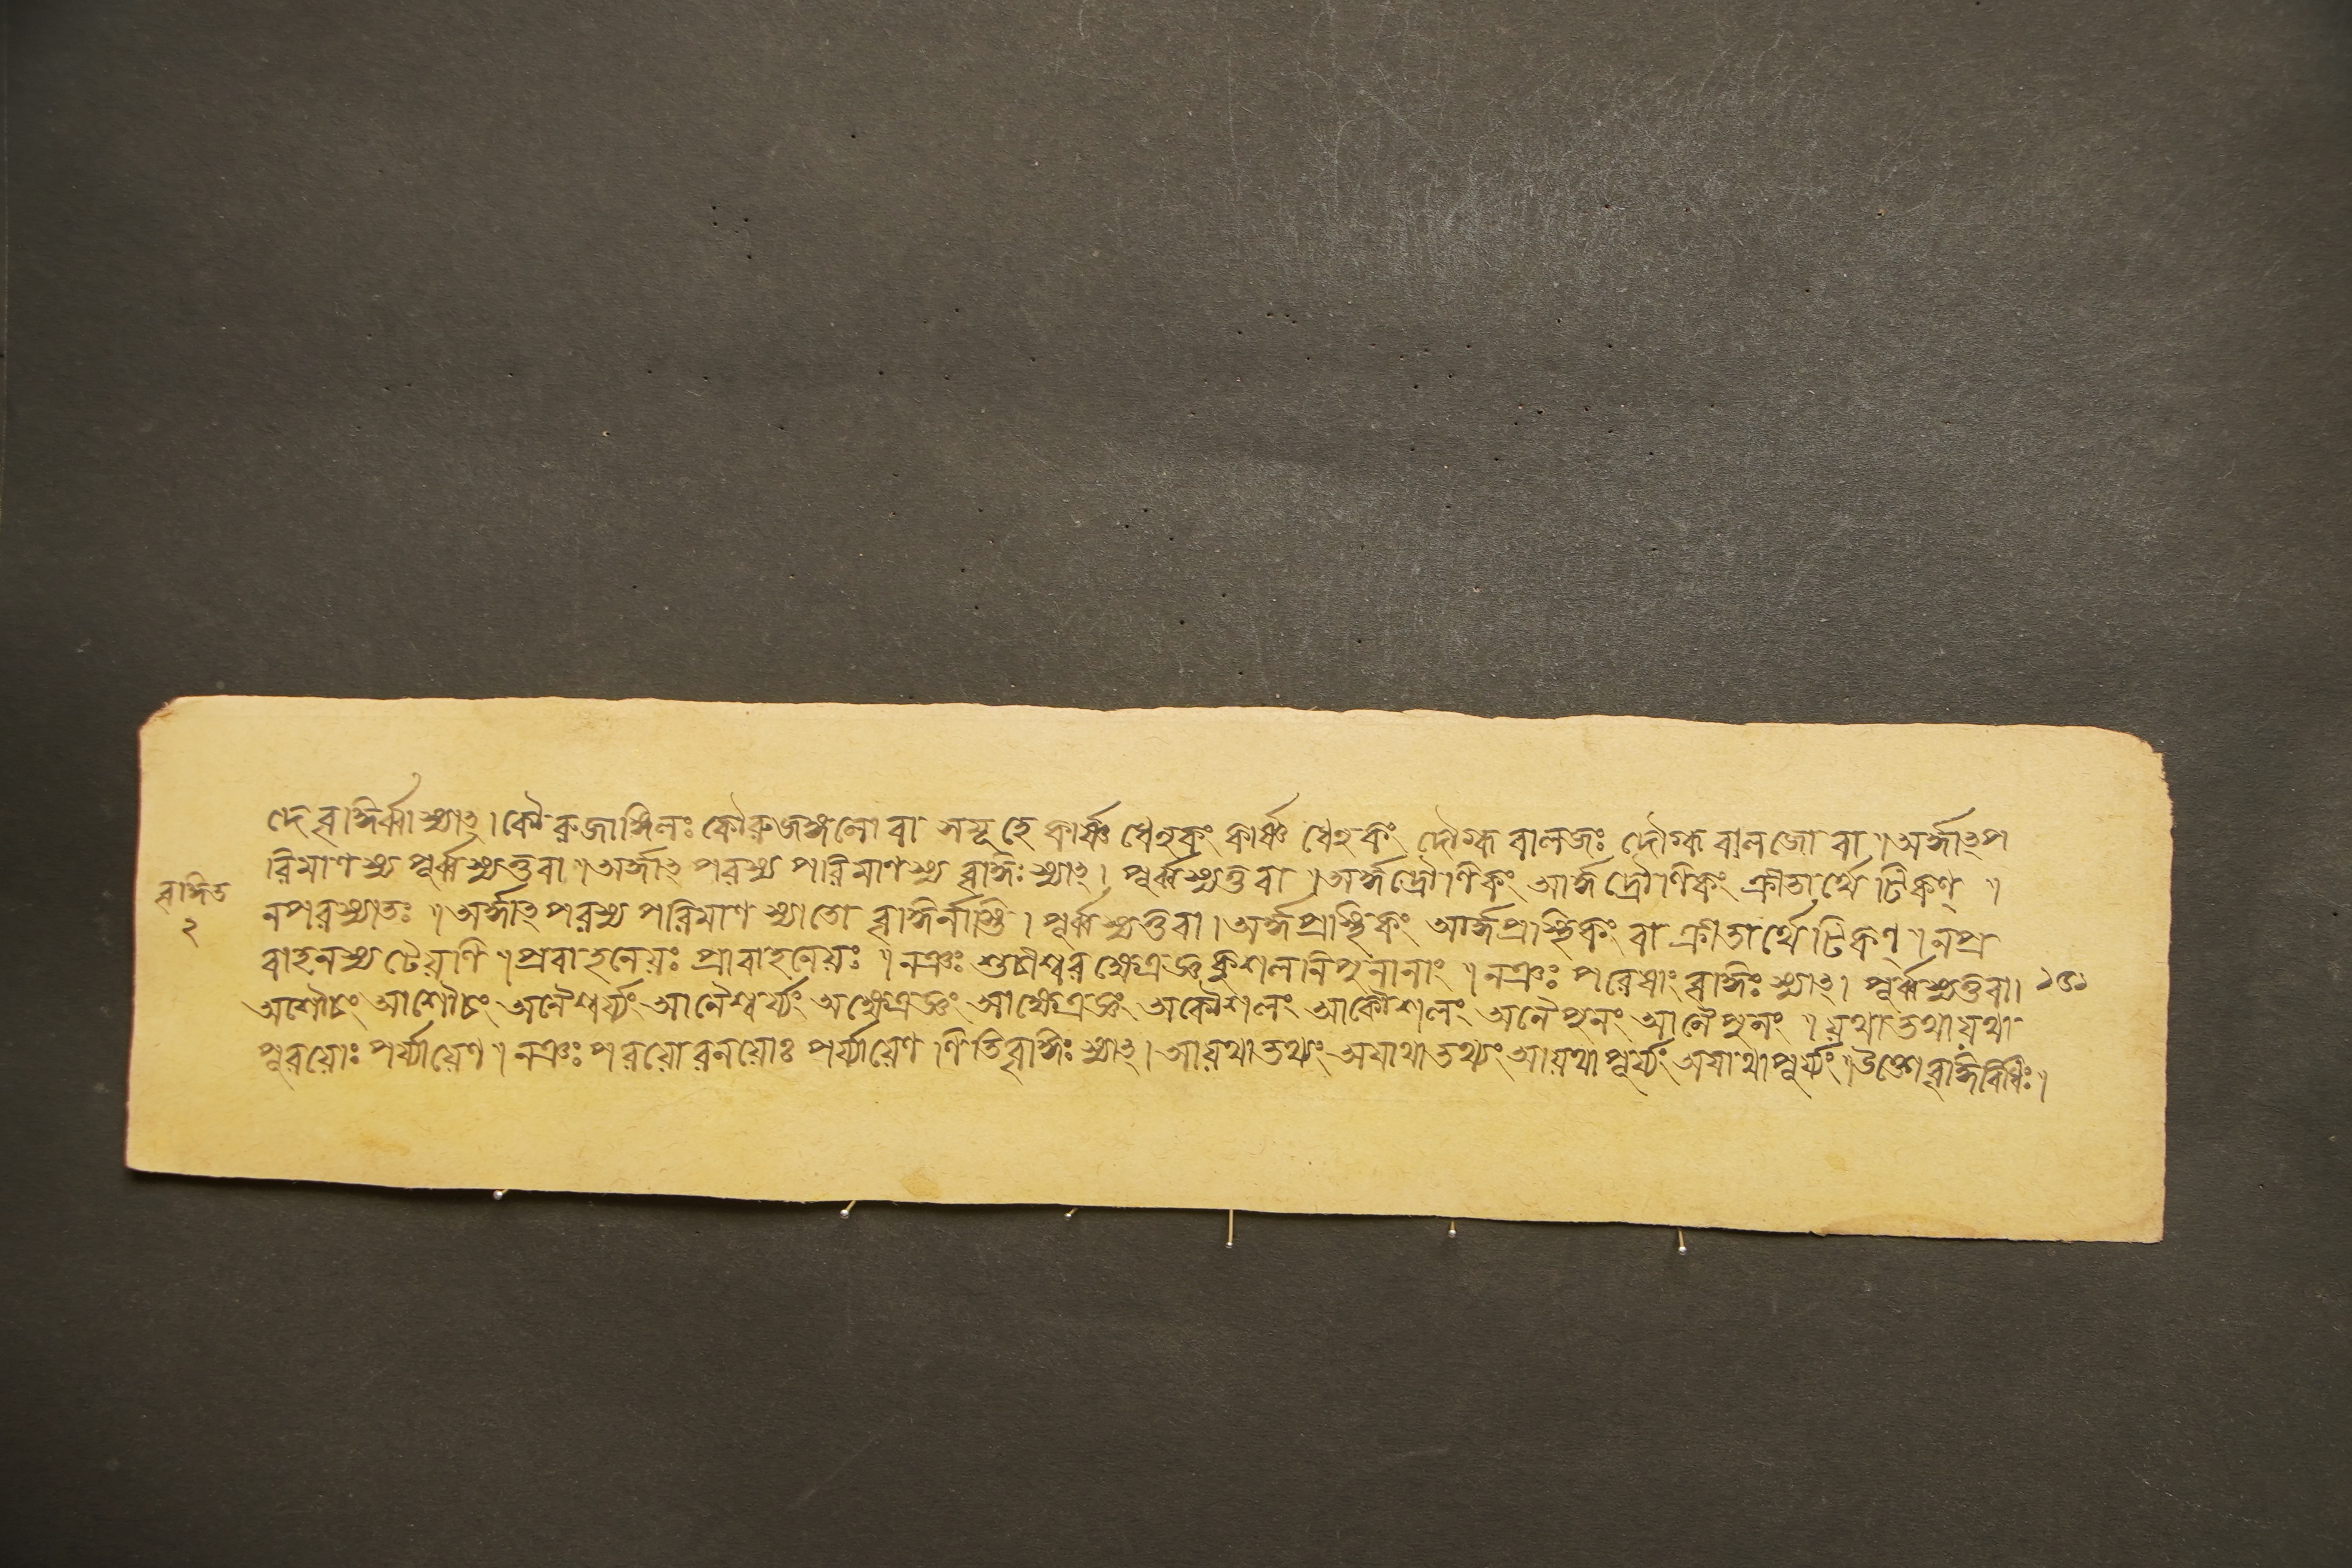 দে বৃদ্ধির্ব্বা স্যাৎ। কৌরুজাঙ্গলঃ কৌরুজঙ্গলো বা সমূহে কার্ষ্ণ ধেনুকং কার্ষ্ণ ধেনুকং দৌগ্ধ বালজঃ দৌগ্ধ বালজো বা॥ অর্দ্ধাৎপ
রিমাণস্য পূর্ব্বস্যতুবা॥ অর্দ্ধাৎ পরস্য পরিমাণস্য বৃদ্ধিঃ স্যাৎ। পূর্ব্বস্যতুবা॥ অর্দ্ধদ্রৌণিকং আর্দ্ধদ্রৌণিকং ক্রীতার্থে টিকণ্॥
বৃদ্ধিত
২
নপরস্যাতঃ॥ অর্দ্ধাৎ পরস্য পরিমাণ স্যাতো বৃদ্ধির্নাস্তি। পূর্ব্বস্যতুবা। অর্দ্ধপ্রস্থিকং আর্দ্ধপ্রস্থিকং বা ক্রীতার্থে টিকণ্॥ নপ্র
বাহনস্য টেয়ণি॥ প্রবাহনেয়ঃ প্রাবাহনেয়ঃ॥ নঞঃ শুচীশ্বর ক্ষেত্রজ্ঞ কুশল নিপুনানাং॥ নঞঃ পরেষাং বৃদ্ধিঃ স্যাৎ। পূর্ব্বস্যতুবা।
অশৌচং আশৌচং অনৈশ্বর্য্যং আনৈশ্বর্য্যং অক্ষৈত্রজ্ঞং আক্ষৈত্রজ্ঞং অকৌশলং আকৌশলং অনৈপুনং আনৈপুনং॥ যথা তথা যথা
পুরয়োঃ পর্য্যায়েণ॥ নঞঃ পরয়োরনয়োঃ পর্য্যায়েণ ণিতি বৃদ্ধিঃ স্যাৎ। আযথাতথ্যং অযাথাতথ্যং আযথাপূর্য্যং অযাথাপূর্য্যং॥ বৃদ্ধির্বিধিঃ।